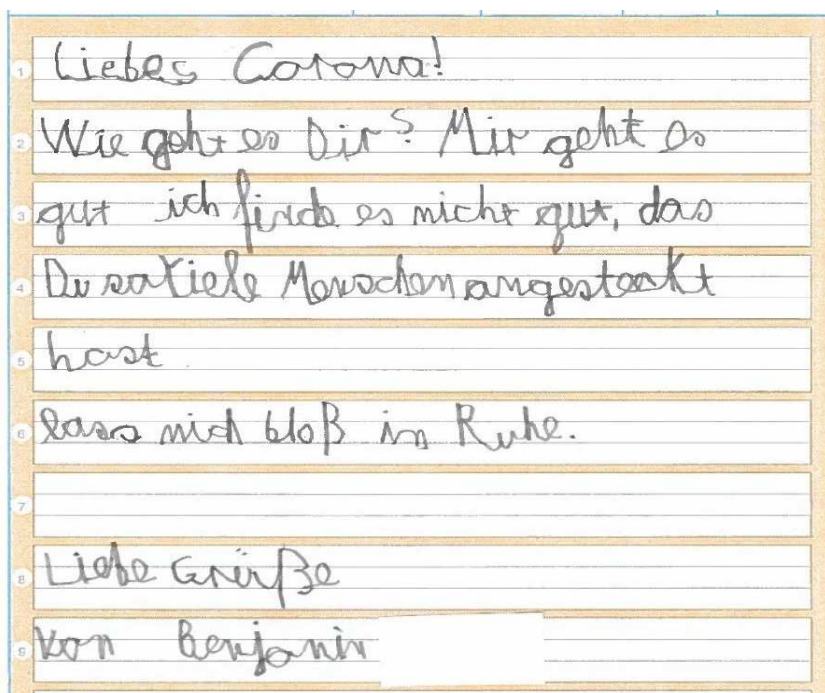 1 Liebes Corona!
2 Wie geht es Dir? Mir geht es
3 gut ich finde es nicht gut, das
4 Du so viele Menschen angesteckt
5 hast
6 lass mich bloß in Ruhe.
7
8 Liebe Grüße
9 von Benjamin